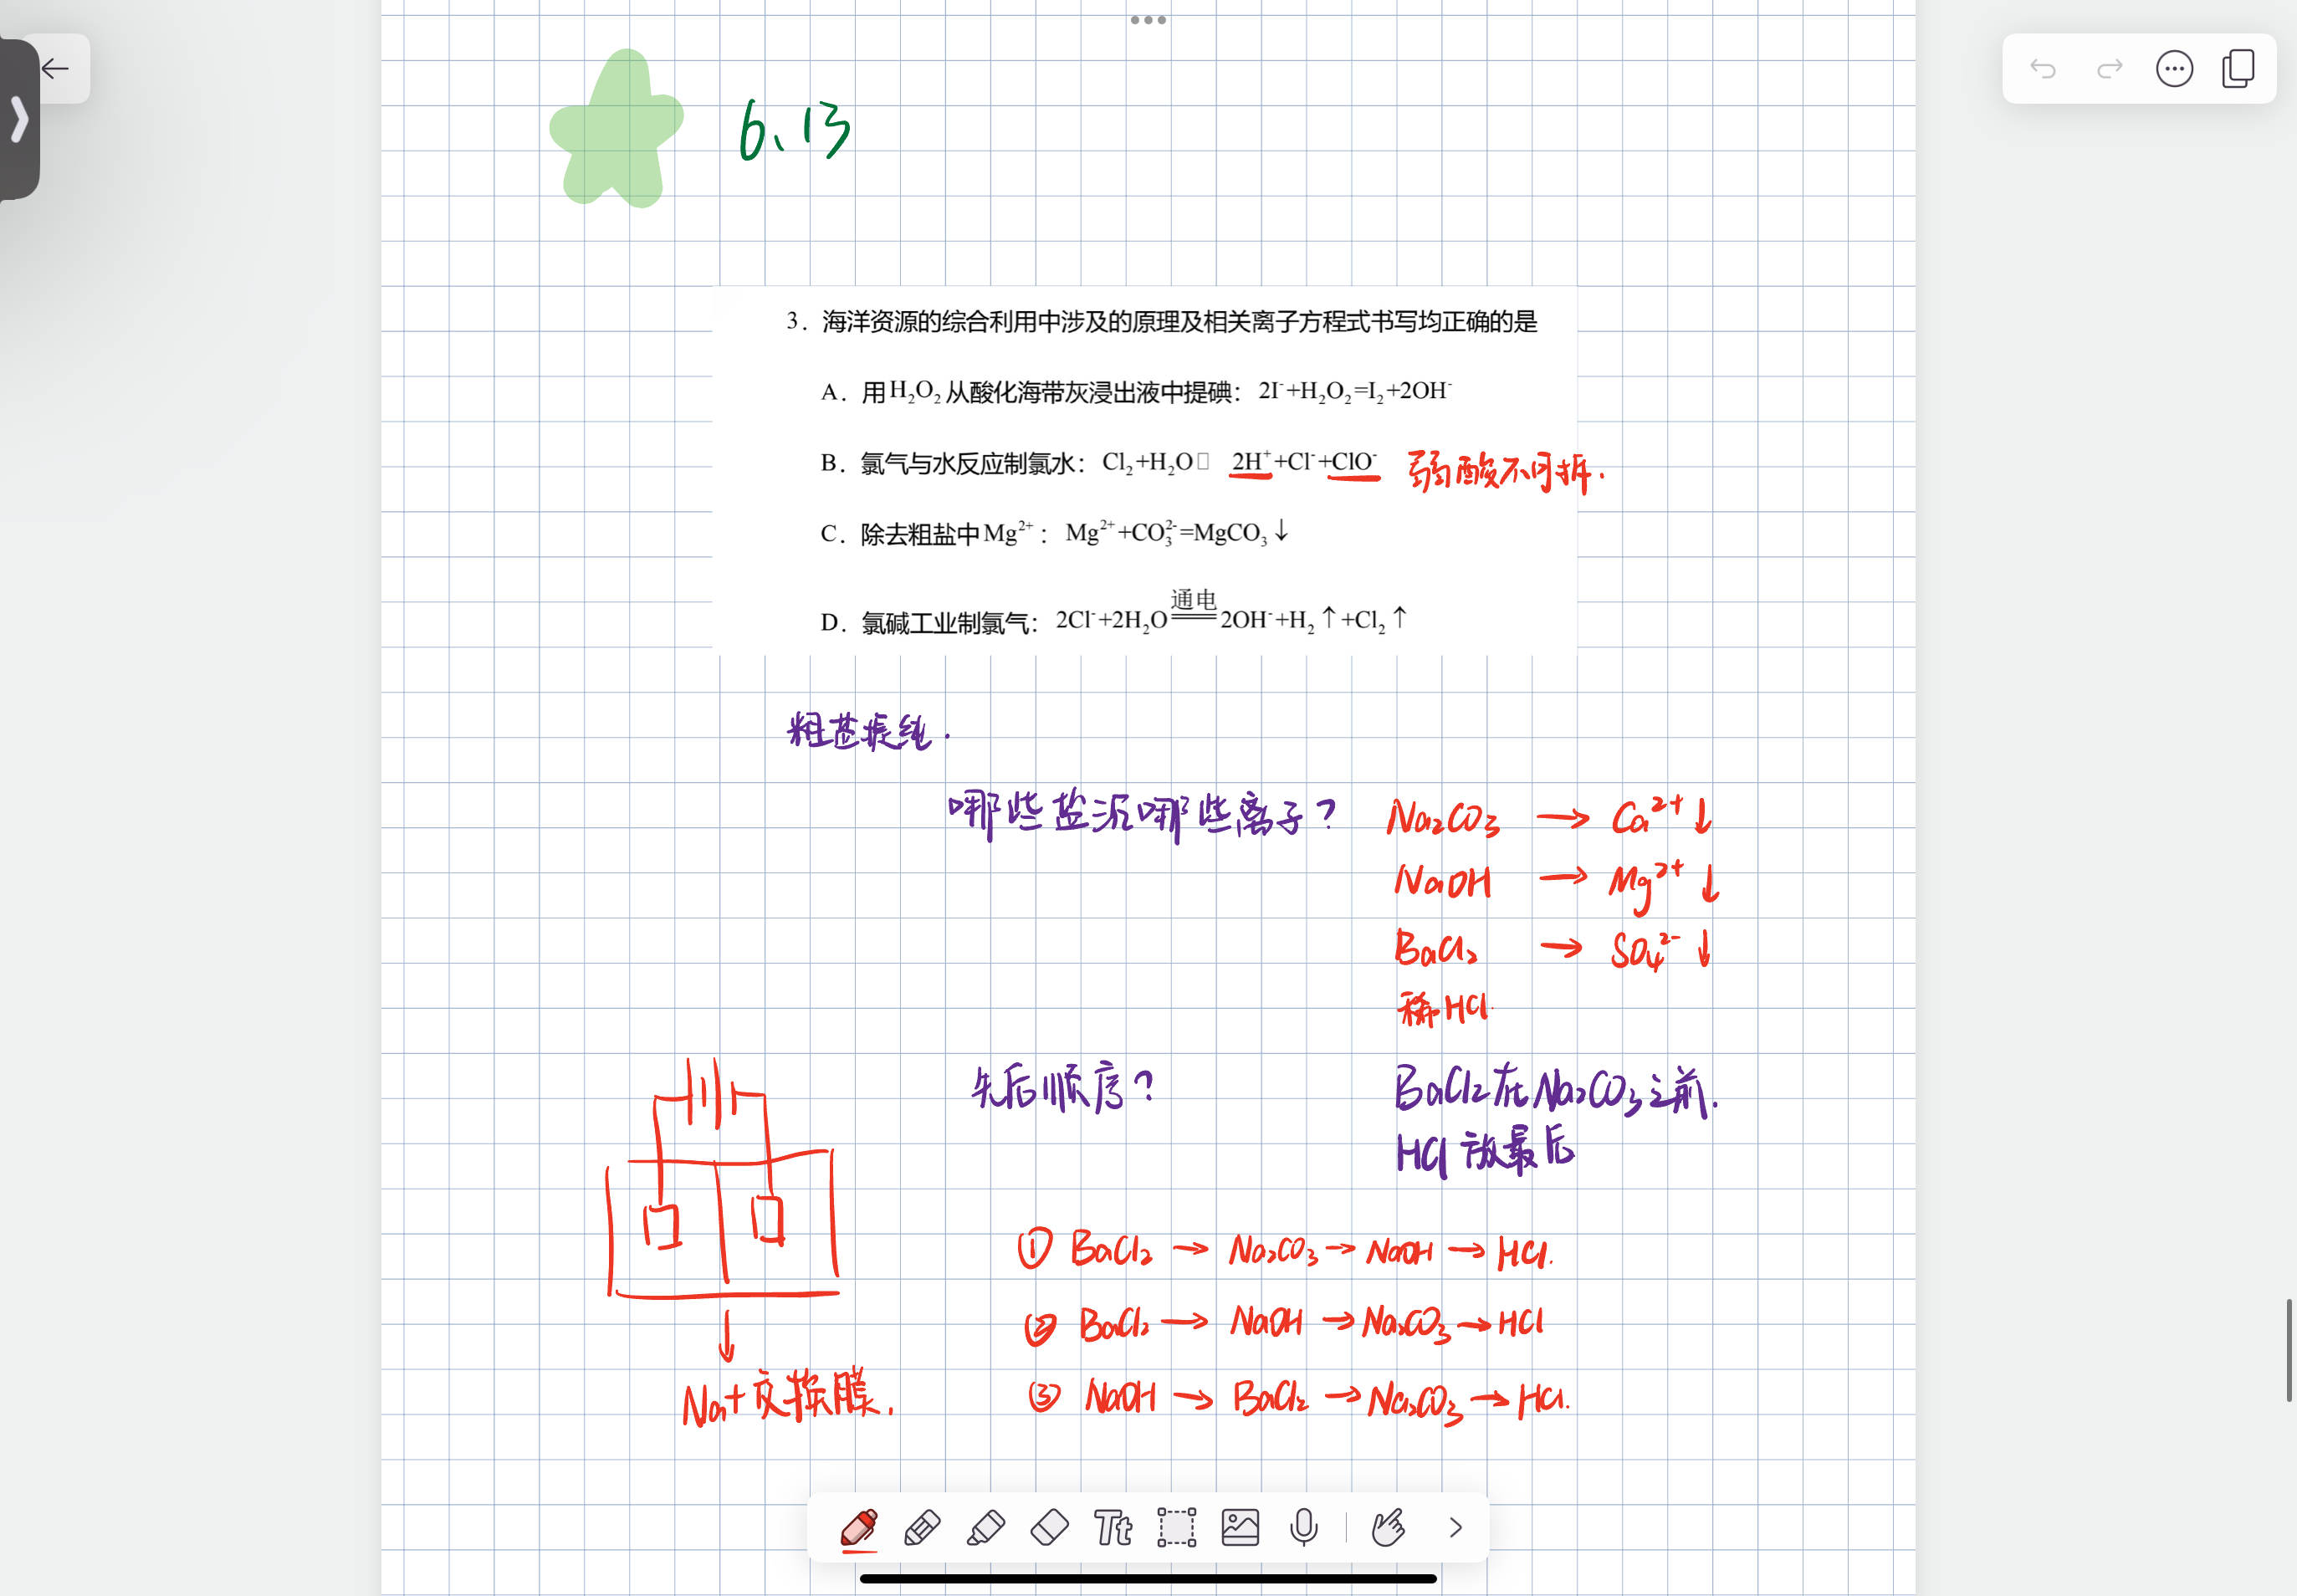 6、13
3．海洋资源的综合利用中涉及的原理及相关离子方程式书写均正确的是
A．用H₂O₂从酸化海带灰浸出液中提碘：2I⁻+H₂O₂=I₂+2OH⁻
B．氯气与水反应制氯水：Cl₂+H₂O□ 2H⁺+Cl⁻+ClO⁻ 弱酸不可拆.
C．除去粗盐中Mg²⁺：Mg²⁺+CO₃²⁻=MgCO₃↓
D．氯碱工业制氯气：2Cl⁻+2H₂O 通电 ══ 2OH⁻+H₂↑+Cl₂↑
粗盐提纯.
哪些盐沉哪些离子? Na₂CO₃ → Ca²⁺↓
NaOH → Mg²⁺↓
BaCl₂ → SO₄²⁻↓
稀HCl.
先后顺序? BaCl₂在Na₂CO₃之前.
HCl放最后
① BaCl₂ → Na₂CO₃ → NaOH → HCl.
② BaCl₂ → NaOH → Na₂CO₃ → HCl
③ NaOH → BaCl₂ → Na₂CO₃ → HCl.
Na+交换膜.
Tt